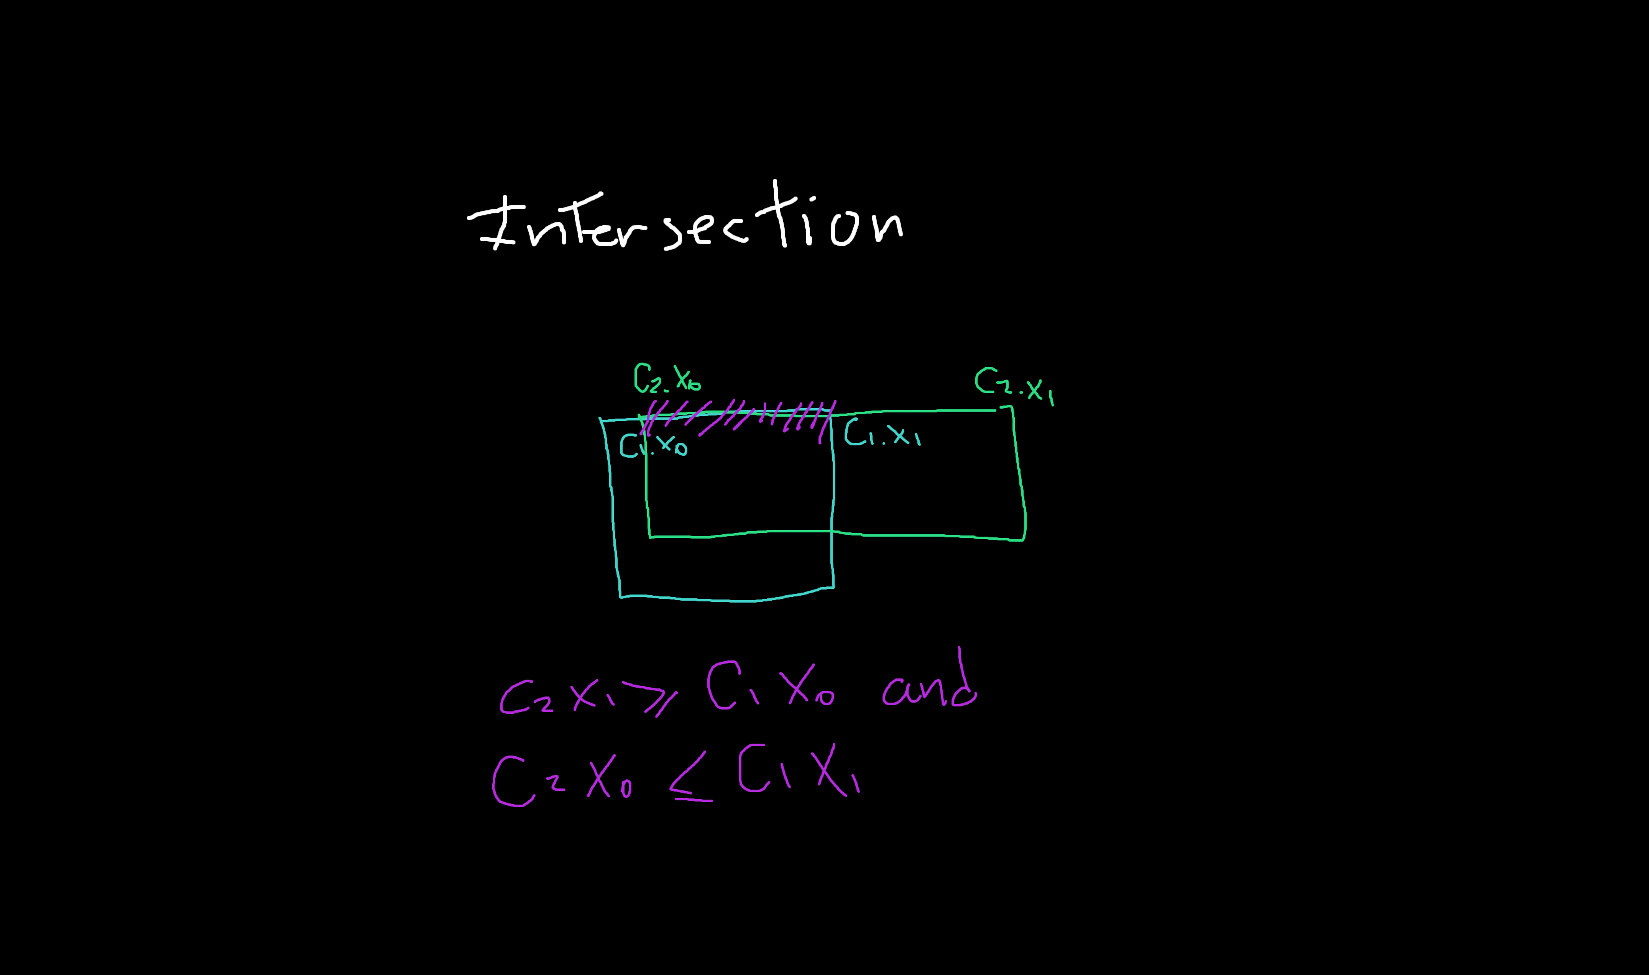 Intersection
C2.x0
C2.x1
C1.x0
C1.x1
C2 x1 ⩾ C1 x0 and
C2 x0 ≤ C1 x1